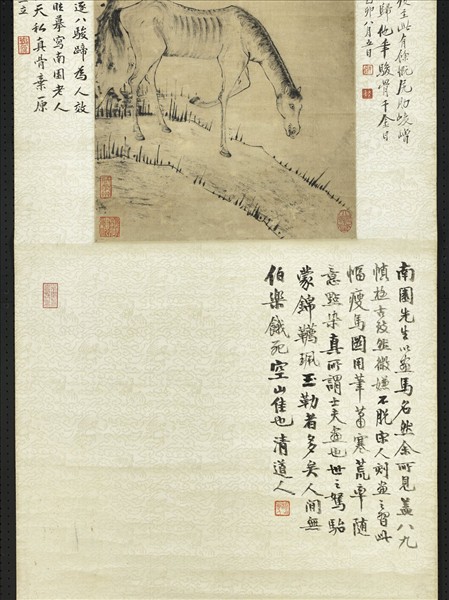 有餘慨尻肋崚嶒
歸他年駿骨千金日
乙卯八月五日
逐八駿蹄為人效
摹寫南園老人
天私真骨棄一原
立
南園先生以畫馬名然余所見蓋八九
極古然微嫌不脫宋人刻畫之習此
幅瘦馬圖用筆蕭寒荒率隨
意點染真所謂士夫畫也世之駑駘
蒙錦韉珮玉勒者多矣人間無
伯樂餓死空山佳也清道人